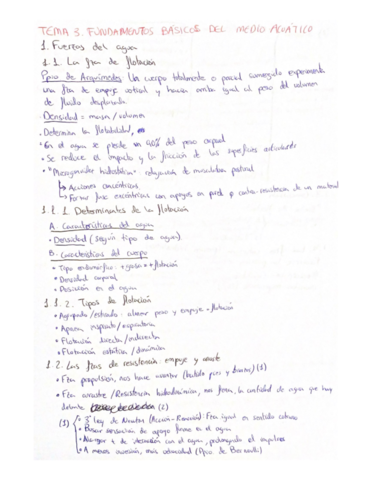 TEMA 3. FUNDAMENTOS BÁSICOS DEL MEDIO ACUÁTICO
1. Fuerzas del agua
1.1. La fza de flotación
Ppio de Arquímedes: Un cuerpo totalmente o parcial sumergido experimenta
una fza de empuje vertical y hacia arriba igual al peso del volumen
de fluido desplazado.
Densidad = masa / volumen
· Determina la flotabilidad,
· En el agua se pierde un 90% del peso corporal
· Se reduce el impacto y la fricción de las superficies articulares
· "Microgravidez hidrostática" relajación de musculatura postural
↳ Acciones concéntricas
↳ Forma fase excéntricas con apoyos en pared o contra-resistencia de un material
1.1.1 Determinantes de la flotación
A. Características del agua
· Densidad (según tipo de agua)
B. Características del cuerpo
· Tipo endomorfo: + grasa + flotación
· Densidad corporal
· Posición en el agua
1.1.2. Tipos de flotación
· Agrupada / estirada: alinear peso y empuje = flotación
· Apnea inspirada / espiratoria
· Flotación directa / indirecta
· Flotación estática / dinámica
1.2. Las fzas de resistencia empuje y arrastre
· Fza propulsión, nos hace avanzar (batido pies y brazos) (1)
· Fza arrastre / Resistencia hidrodinámica, nos frena, la cantidad de agua que hay
delante (2)
(1) · 3ª Ley de Newton (Acción-Reacción) Fza igual en sentido contrario
· Buscar sensación de apoyo firme en el agua
· Alargar + de desviación con el agua, prolongando el
· A menos presión, más velocidad (Ppio de Bernoulli)